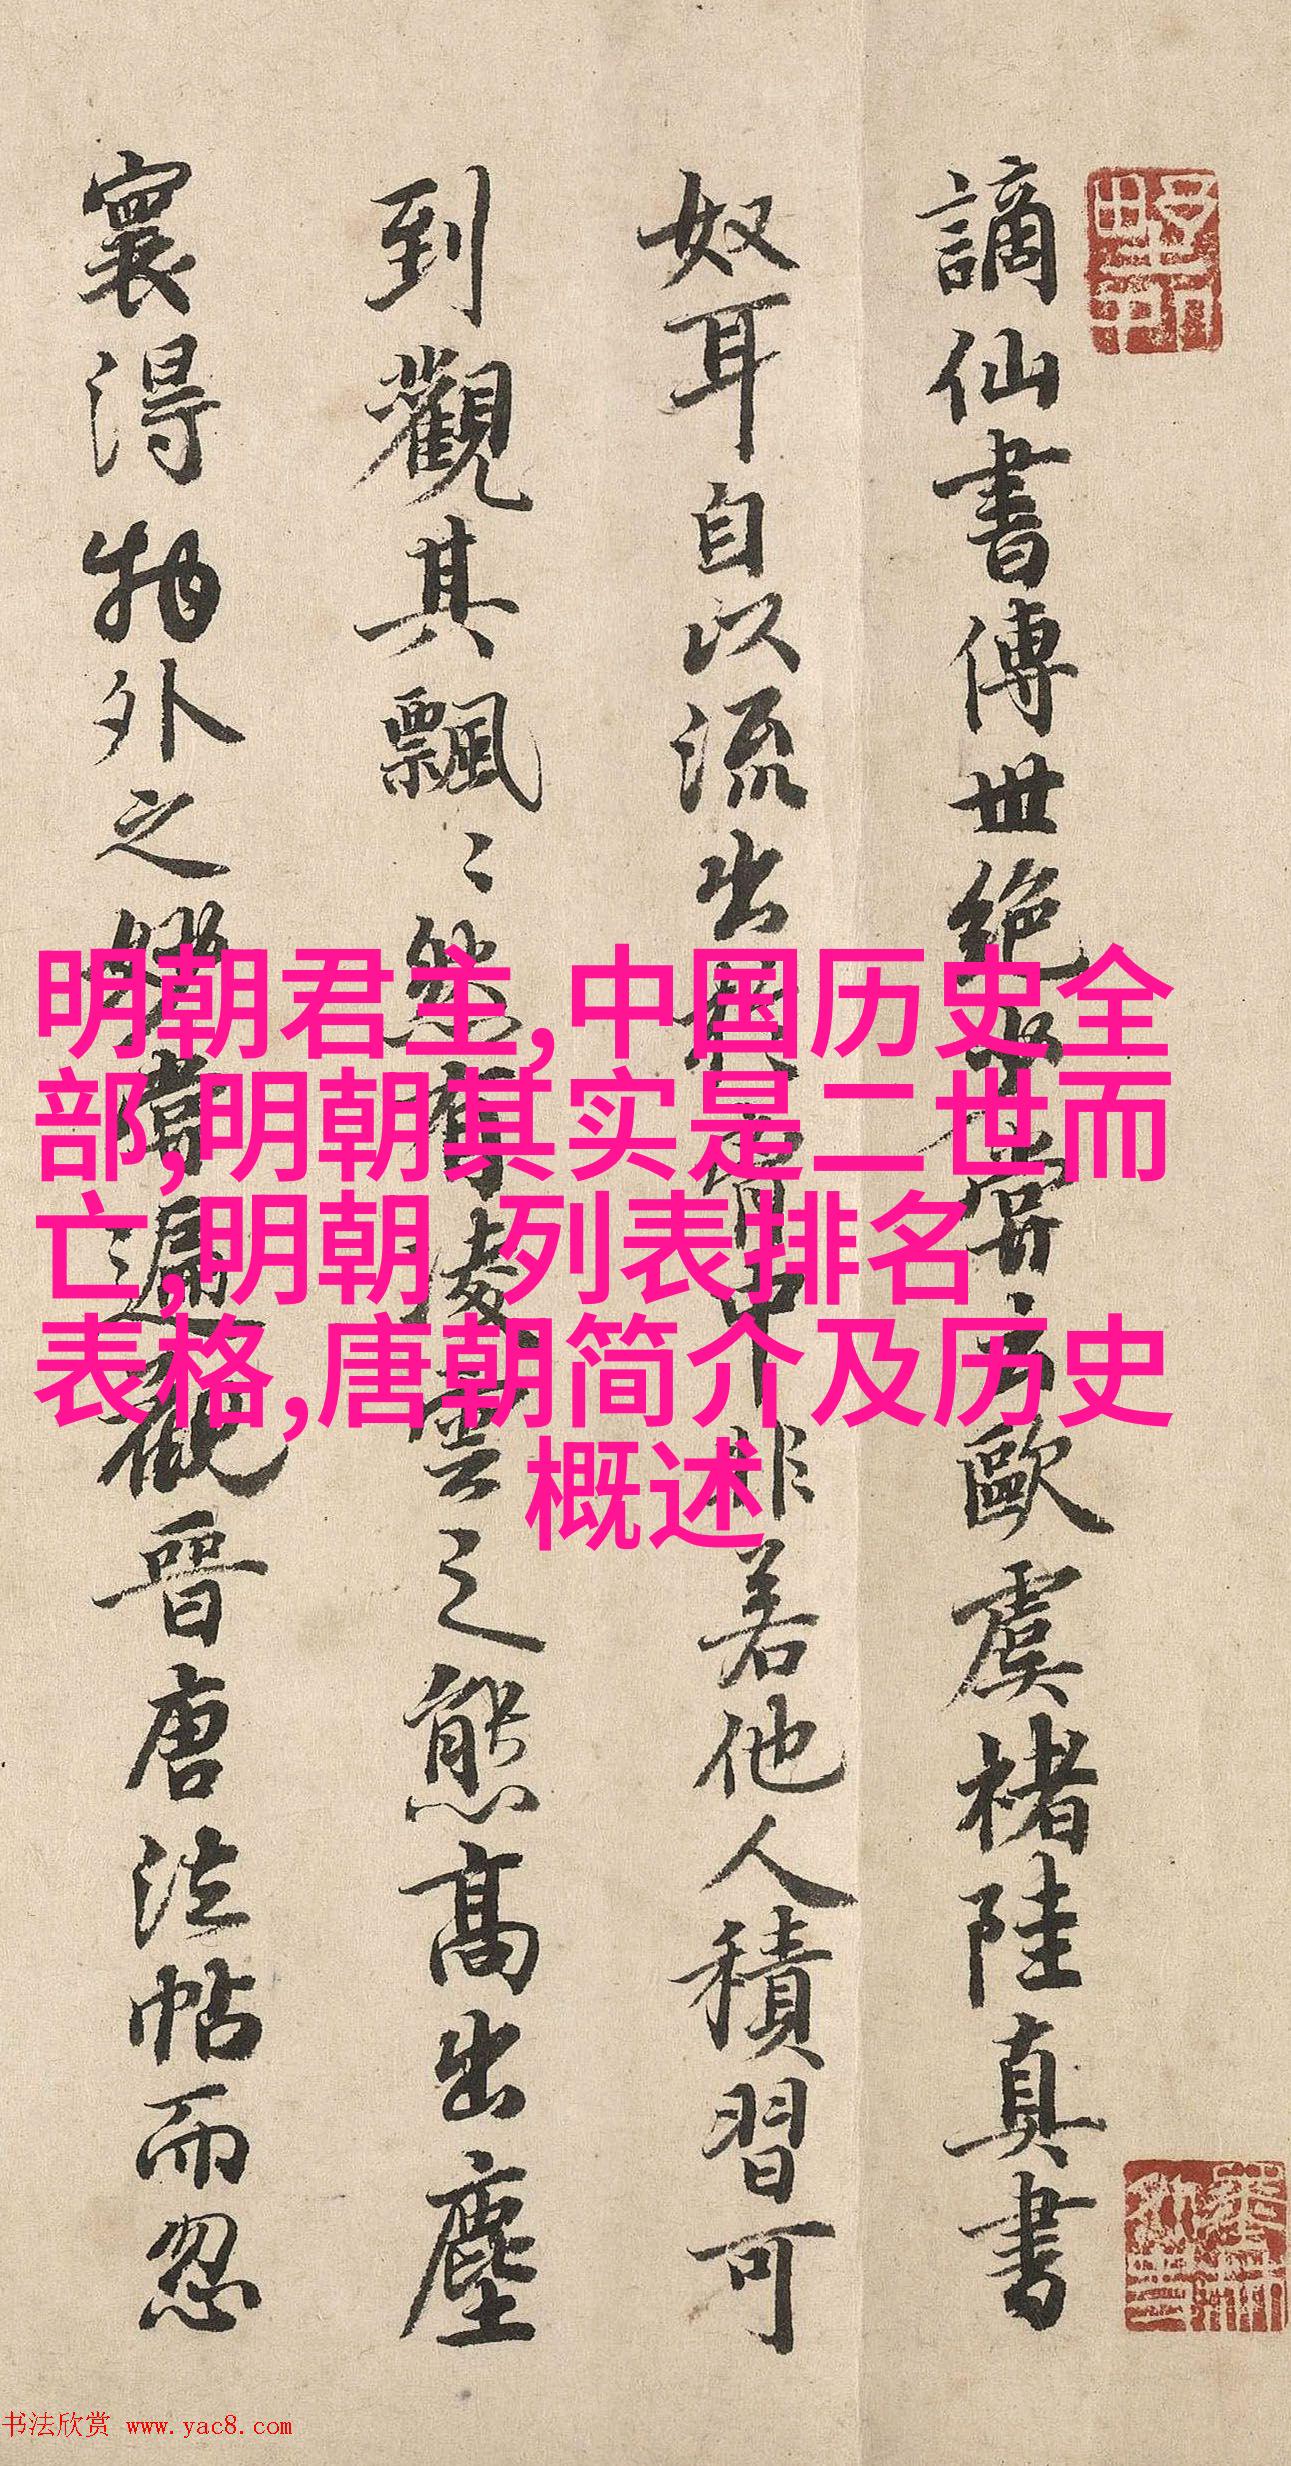 謫仙書傳世絕少嘗云歐虞褚陸真書
奴耳自以流出於胷中非若他人積習可
到觀其飄〻然有凌雲之態高出塵
寰得物外之妙嘗遍觀晉唐法帖而忽
明朝君主,中国历史全
部,明朝其实是二世而
亡,明朝 列表排名
表格,唐朝简介及历史
概述
书法欣赏 www.yac8.com